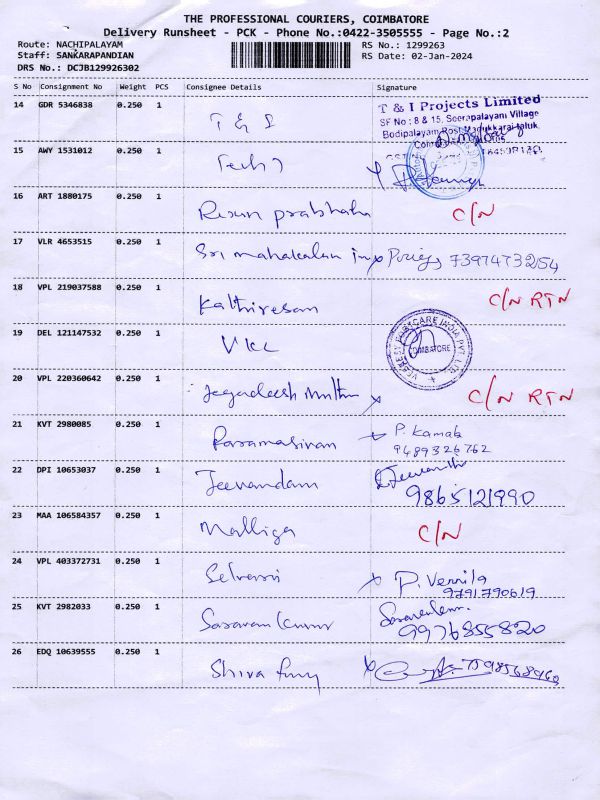 THE PROFESSIONAL COURIERS, COIMBATORE
Delivery Runsheet - PCK - Phone No.:0422-3505555 - Page No.:2
Route: NACHIPALAYAM RS No.: 1299263
Staff: SANKARAPANDIAN RS Date: 02-Jan-2024
DRS No.: DCJB129926302
S No Consignment No Weight PCS Consignee Details Signature
14 GDR 5346838 0.250 1 T & I T & I Projects Limited
SF No : 8 & 15, Seerapalayam Village
Bodipalayam Post Madukkarai taluk
15 AWY 1531012 0.250 1
16 ART 1880175 0.250 1 prabhaha C/N
17 VLR 4653515 0.250 1 Sri mahakalan 7397473254
18 VPL 219037588 0.250 1 Kathiresan C/N RTN
19 DEL 121147532 0.250 1 VKC COIMBATORE
20 VPL 220360642 0.250 1 Jegadeesh Muthu x C/N RTN
21 KVT 2980085 0.250 1 Paramasivan P. Kamala
9489326762
22 DPI 10653037 0.250 1 Jeevandam
9865121990
23 MAA 106584357 0.250 1 Malliga C/N
24 VPL 403372731 0.250 1 Selvarani x P. Vennila
9791790619
25 KVT 2982033 0.250 1 Saravan Kumar
9976855820
26 EDQ 10639555 0.250 1 Shiva 7598568960